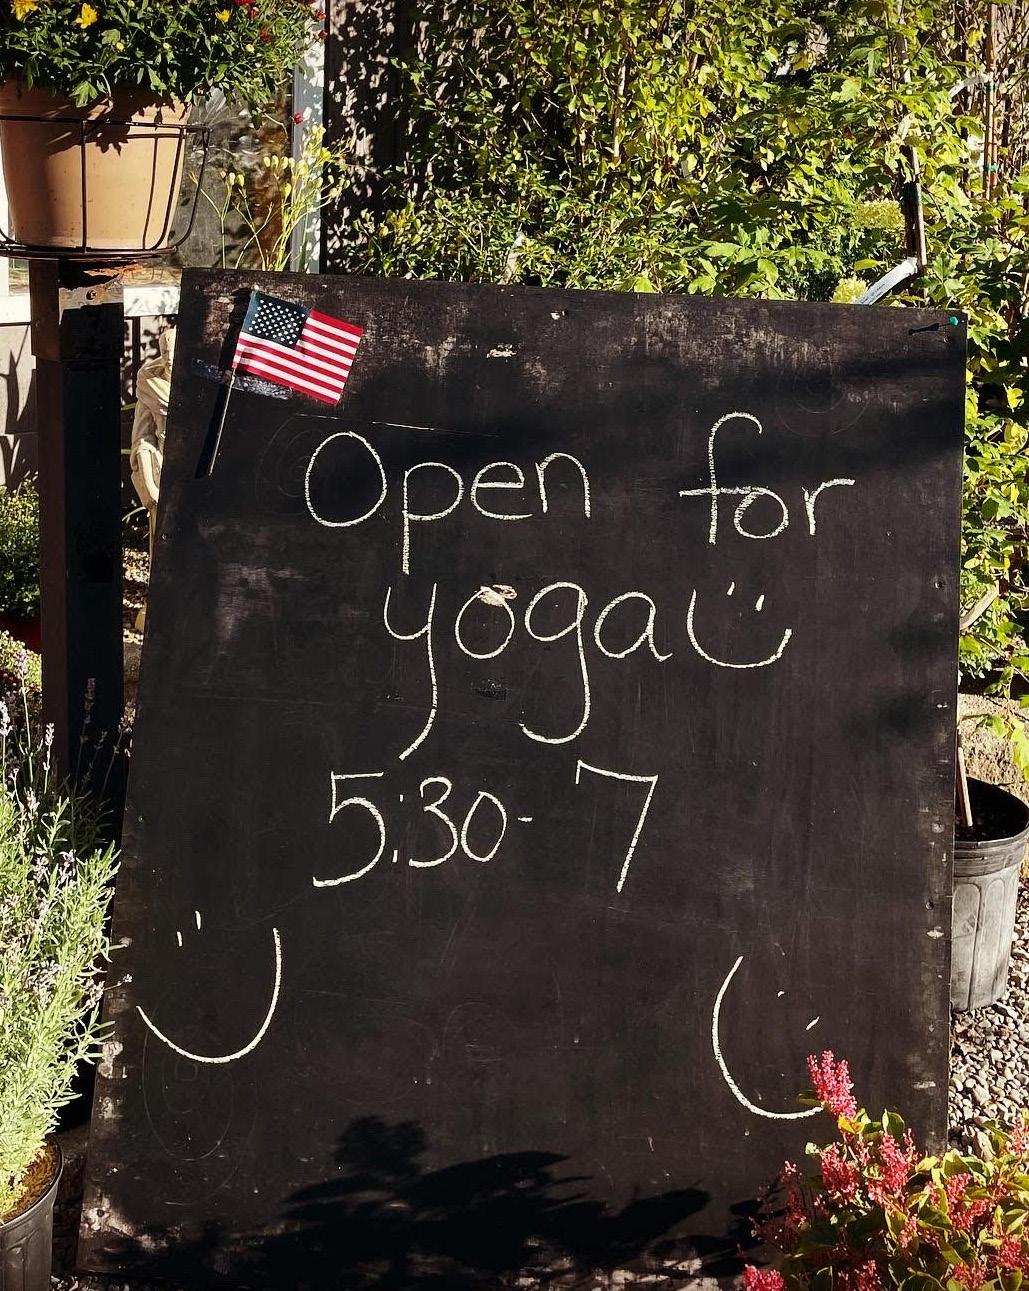 Open for
yoga
5:30- 7